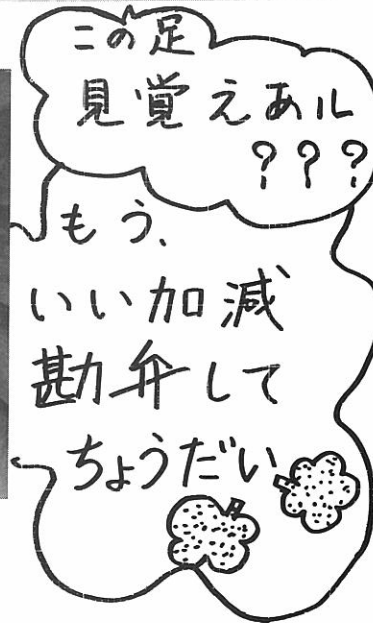 この足
見覚えあル
???
もう、
いい加減
勘弁して
ちょうだい